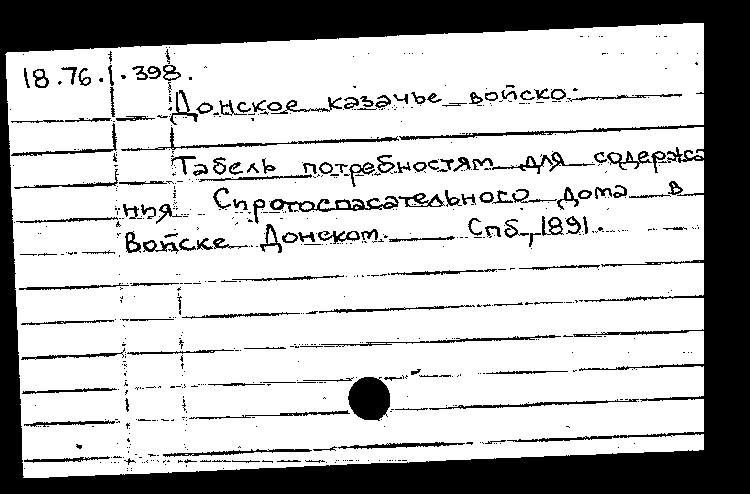 18.76.1.398.
Донское казачье войско.
Табель потребностям для содержа
ния Сиротоспасательного дома в
Войске Донском. Спб, 1891.